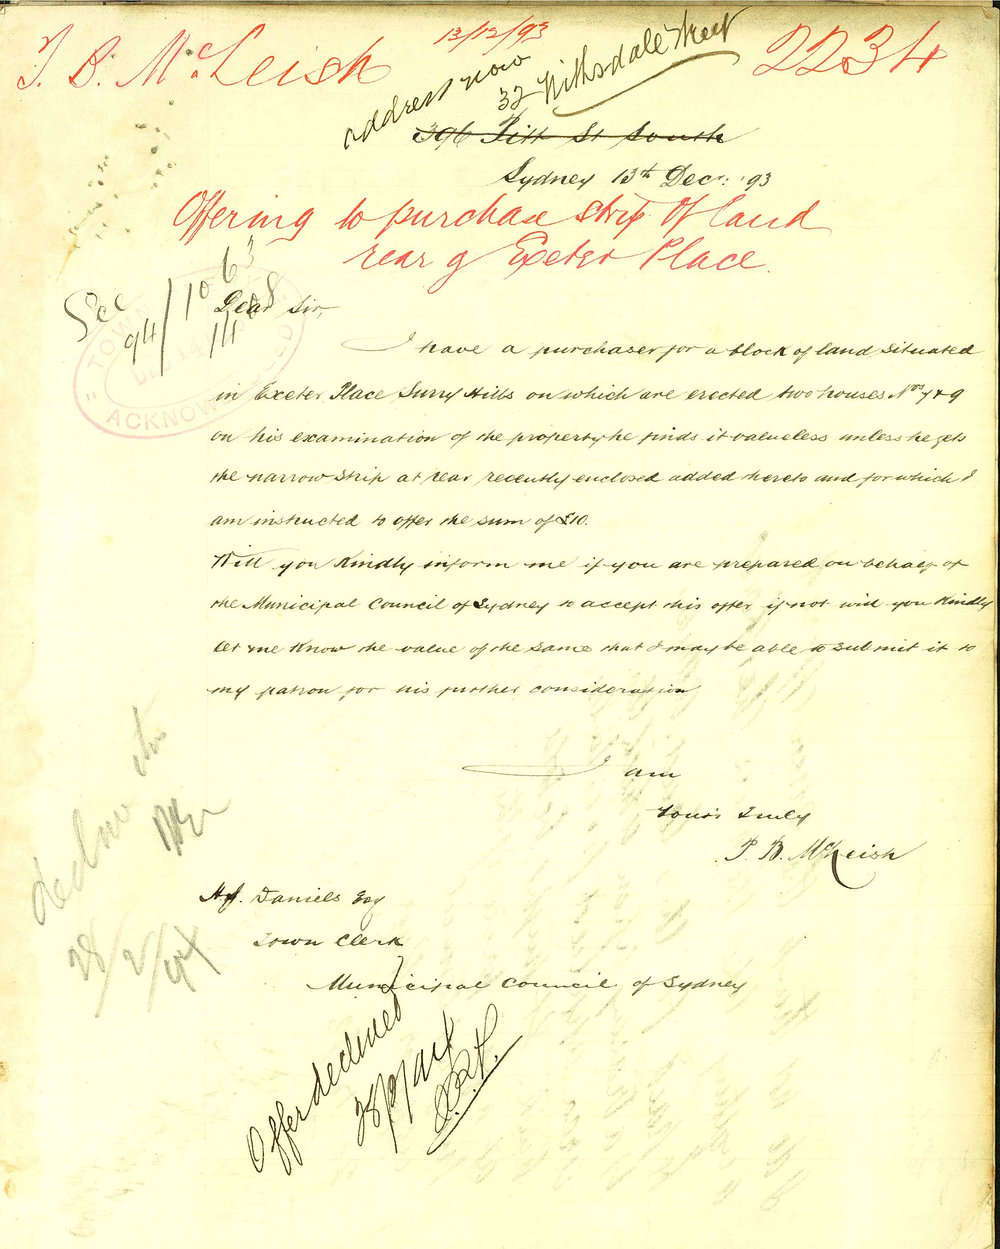 T. B. McLeish 13/12/93 2234
address now
32 Nithsdale Street
396 Pitt St South
Sydney 13th Decr: '93
Offering to purchase strip of land
rear of Exeter Place.
See
94/1063
1408
TOWN
ACKNOWLEDGED
Dear Sir,
I have a purchaser for a block of land situated
in Exeter Place Surry Hills on which are erected two houses Nos 7 & 9
on his examination of the property he finds it valueless unless he gets
the narrow strip at rear recently enclosed added thereto and for which I
am instructed to offer the sum of £10.
Will you kindly inform me if you are prepared on behalf of
the Municipal Council of Sydney to accept this offer if not will you kindly
let me know the value of the same that I may be able to submit it to
my patron for his further consideration
I am
Yours Truly
T. B. McLeish
28/2/94
H.J. Daniels Esq
Town Clerk
Municipal Council of Sydney
Offer declined